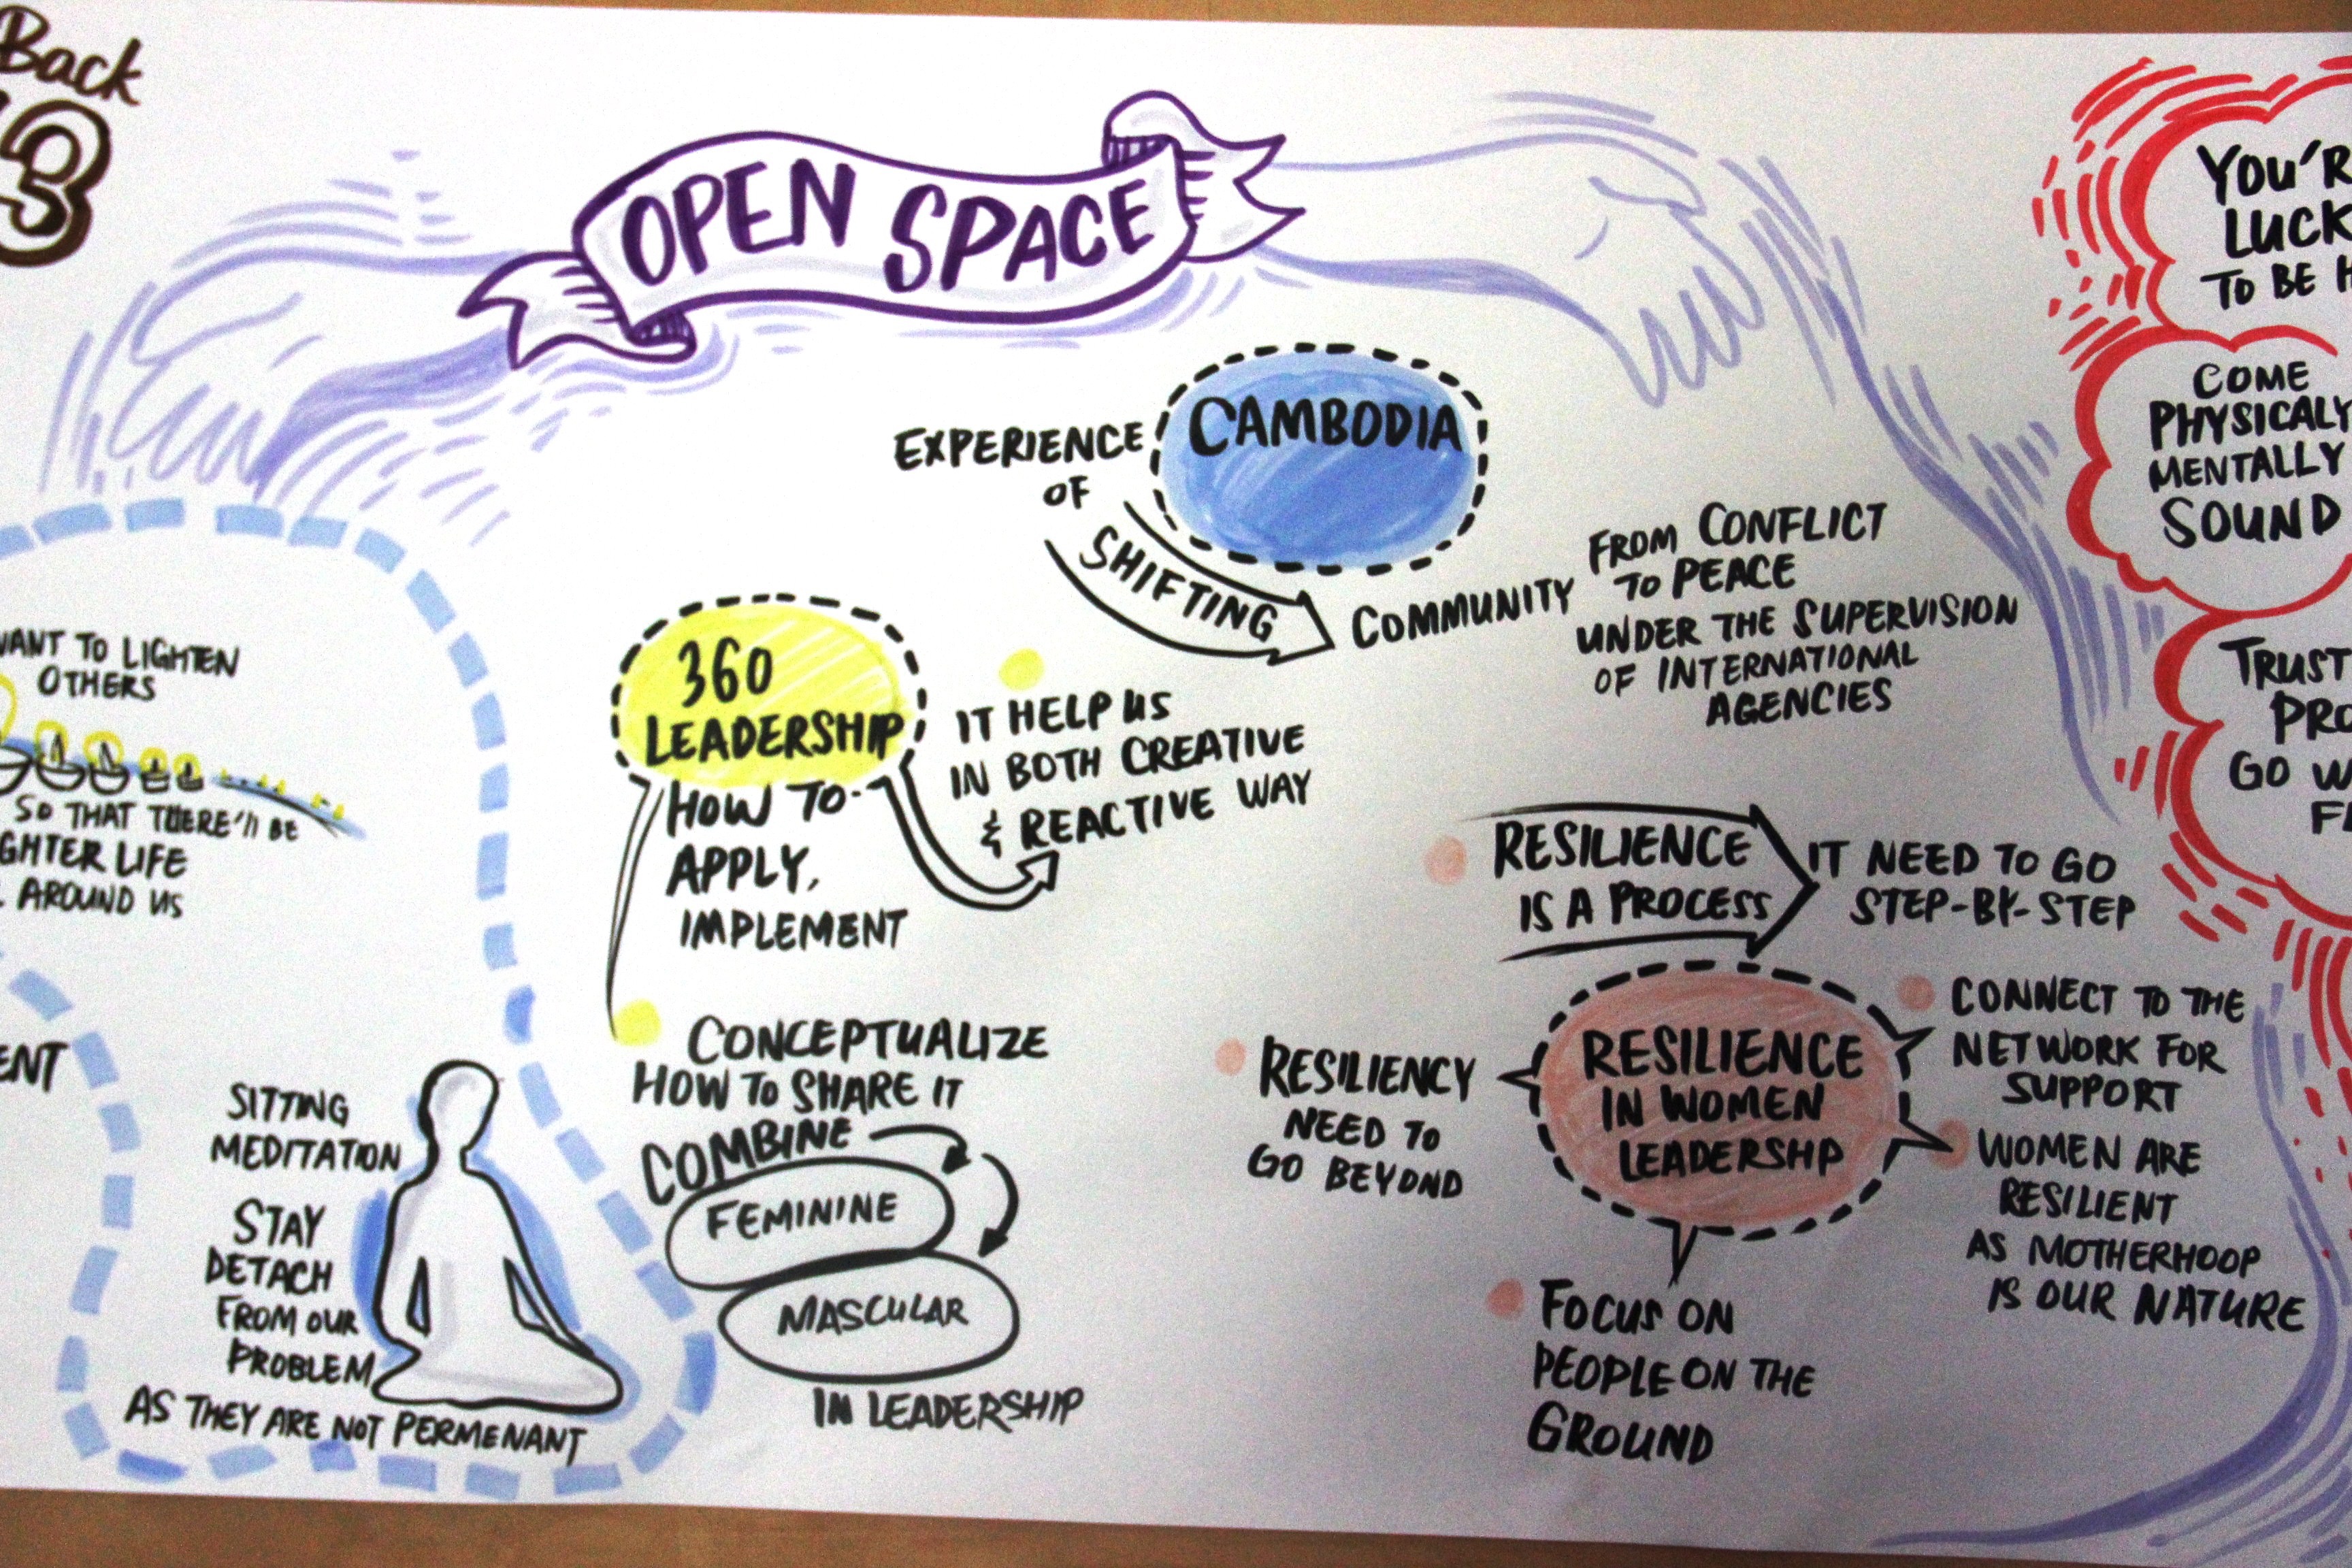 Back
3
OPEN SPACE
WANT TO LIGHTEN
OTHERS
SO THAT THERE'll BE
LIFE
AROUND us
SITTING
MEDITATION
STAY
DETACH
FROM OUR
PROBLEM
AS THEY ARE NOT PERMENANT
EXPERIENCE
OF
SHIFTING
CAMBODIA
COMMUNITY
FROM CONFLICT
TO PEACE
UNDER THE SUPERVISION
OF INTERNATIONAL
AGENCIES
360
LEADERSHIP
HOW TO
APPLY,
IMPLEMENT
IT HELP US
IN BOTH CREATIVE
& REACTIVE WAY
CONCEPTUALIZE
HOW TO SHARE IT
COMBINE
FEMININE
MASCULAR
IN LEADERSHIP
RESILIENCE
IS A PROCESS
IT NEED TO GO
STEP-BY-STEP
RESILIENCE
IN WOMEN
LEADERSHP
RESILIENCY
NEED TO
GO BEYOND
CONNECT TO THE
NETWORK FOR
SUPPORT
WOMEN ARE
RESILIENT
AS MOTHERHOOP
IS OUR NATURE
FOCUS ON
PEOPLE ON THE
GROUND
TO BE
COME
PHYSICALY
MENTALLY
SOUND
TRUST
GO